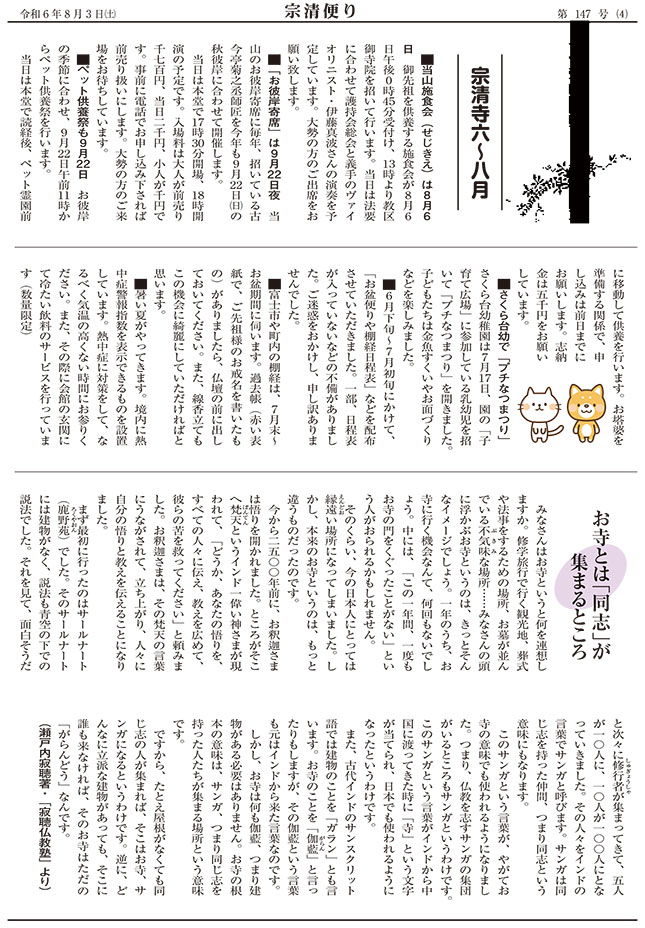 令和６年８月３日㈯
宗清便り
第 147 号 ⑷
宗清寺六〜八月
■当山施食会（せじきえ）は８月６
日　御先祖を供養する施食会が８月６
日午後０時45分受付け、13時より教区
御寺院を招いて行います。当日は法要
に合わせて護持会総会と義手のヴァイ
オリニスト・伊藤真波さんの演奏を予
定しています。大勢の方のご出席をお
願い致します。
■「お彼岸寄席」は９月22日夜　当
山のお彼岸寄席に毎年、招いている古
今亭菊之丞師匠を今年も９月22日㈰の
秋彼岸に合わせて開催します。
当日は本堂で17時30分開場、18時開
演の予定です。入場料は大人が前売り
千七百円、当日二千円、小人が千円で
す。事前に電話でお申し込み下されば
前売り扱いにします。大勢の方のご来
場をお待ちしています。
■ペット供養祭も９月22日　お彼岸
の季節に合わせ、９月22日午前11時か
らペット供養祭を行います。
当日は本堂で読経後、ペット霊園前
に移動して供養を行います。お塔婆を
準備する関係で、申
し込みは前日までに
お願いします。志納
金は五千円をお願い
しています。
■さくら台幼で「プチなつまつり」
さくら台幼稚園は７月17日、園の「子
育て広場」に参加している乳幼児を招
いて「プチなつまつり」を開きました。
子どもたちは金魚すくいやお面づくり
などを楽しみました。
■６月下旬〜７月初旬にかけて、
「お盆便りや棚経日程表」などを配布
させていただきました。一部、日程表
が入っていないなどの不備がありまし
た。ご迷惑をおかけし、申し訳ありま
せんでした。
■富士市や町内の棚経は、７月末〜
お盆期間に伺います。過去帳（赤い表
紙で、ご先祖様のお戒名を書いたも
の）がありましたら、仏壇の前に出し
ておいてください。また、線香立ても
この機会に綺麗にしていただければと
思います。
■暑い夏がやってきます。境内に熱
中症警報指数を表示できるものを設置
しています。熱中症に対策をして、な
るべく気温の高くない時間にお参りく
ださい。また、その際に会館の玄関に
て冷たい飲料のサービスを行っていま
す（数量限定）
お寺とは「同志」が
集まるところ
みなさんはお寺というと何を連想し
ますか。修学旅行で行く観光地、葬式
や法事をするための場所、お墓が並ん
でいる不気味な場所……みなさんの頭
に浮かぶお寺というのは、きっとそん
なイメージでしょう。一年のうち、お
寺に行く機会なんて、何回もないでし
ょう。中には、「この一年間、一度も
お寺の門をくぐったことがない」とい
う人がおられるかもしれません。
そのくらい、今の日本人にとっては
縁遠い場所になってしまいました。し
かし、本来のお寺というのは、もっと
違うものだったのです。
今から二五〇〇年前に、お釈迦さま
は悟りを開かれました。ところがそこ
へ梵天というインド一偉い神さまが現
われて、「どうか、あなたの悟りを、
すべての人々に伝え、教えを広めて、
彼らの苦を救ってください」と頼みま
した。お釈迦さまは、その梵天の言葉
にうながされて、立ち上がり、人々に
自分の悟りと教えを伝えることになり
ました。
まず最初に行ったのはサールナート
（鹿野苑）でした。そのサールナート
には建物がなく、説法も青空の下での
説法でした。それを見て、面白そうだ
と次々に修行者が集まってきて、五人
が一〇人に、一〇人が一〇〇人にとな
っていきました。その人々をインドの
言葉でサンガと呼びます。サンガは同
じ志を持った仲間、つまり同志という
意味にもなります。
このサンガという言葉が、やがてお
寺の意味でも使われるようになりまし
た。つまり、仏教を志すサンガの集団
がいるところもサンガというわけです。
このサンガという言葉がインドから中
国に渡ってきた時に「寺」という文字
が当てられ、日本でも使われるように
なったというわけです。
また、古代インドのサンスクリット
語では建物のことを「ガラン」とも言
います。お寺のことを「伽藍」と言っ
たりもしますが、その伽藍という言葉
も元はインドから来た言葉なのです。
しかし、お寺は何も伽藍、つまり建
物がある必要はありません。お寺の根
本の意味は、サンガ、つまり同じ志を
持った人たちが集まる場所という意味
です。
ですから、たとえ屋根がなくても同
じ志の人が集まれば、そこはお寺、サ
ンガになるというわけです。逆に、ど
んなに立派な建物があっても、そこに
誰も来なければ、そのお寺はただの
「がらんどう」なんです。
（瀬戸内寂聴著・「寂聴仏教塾」より）